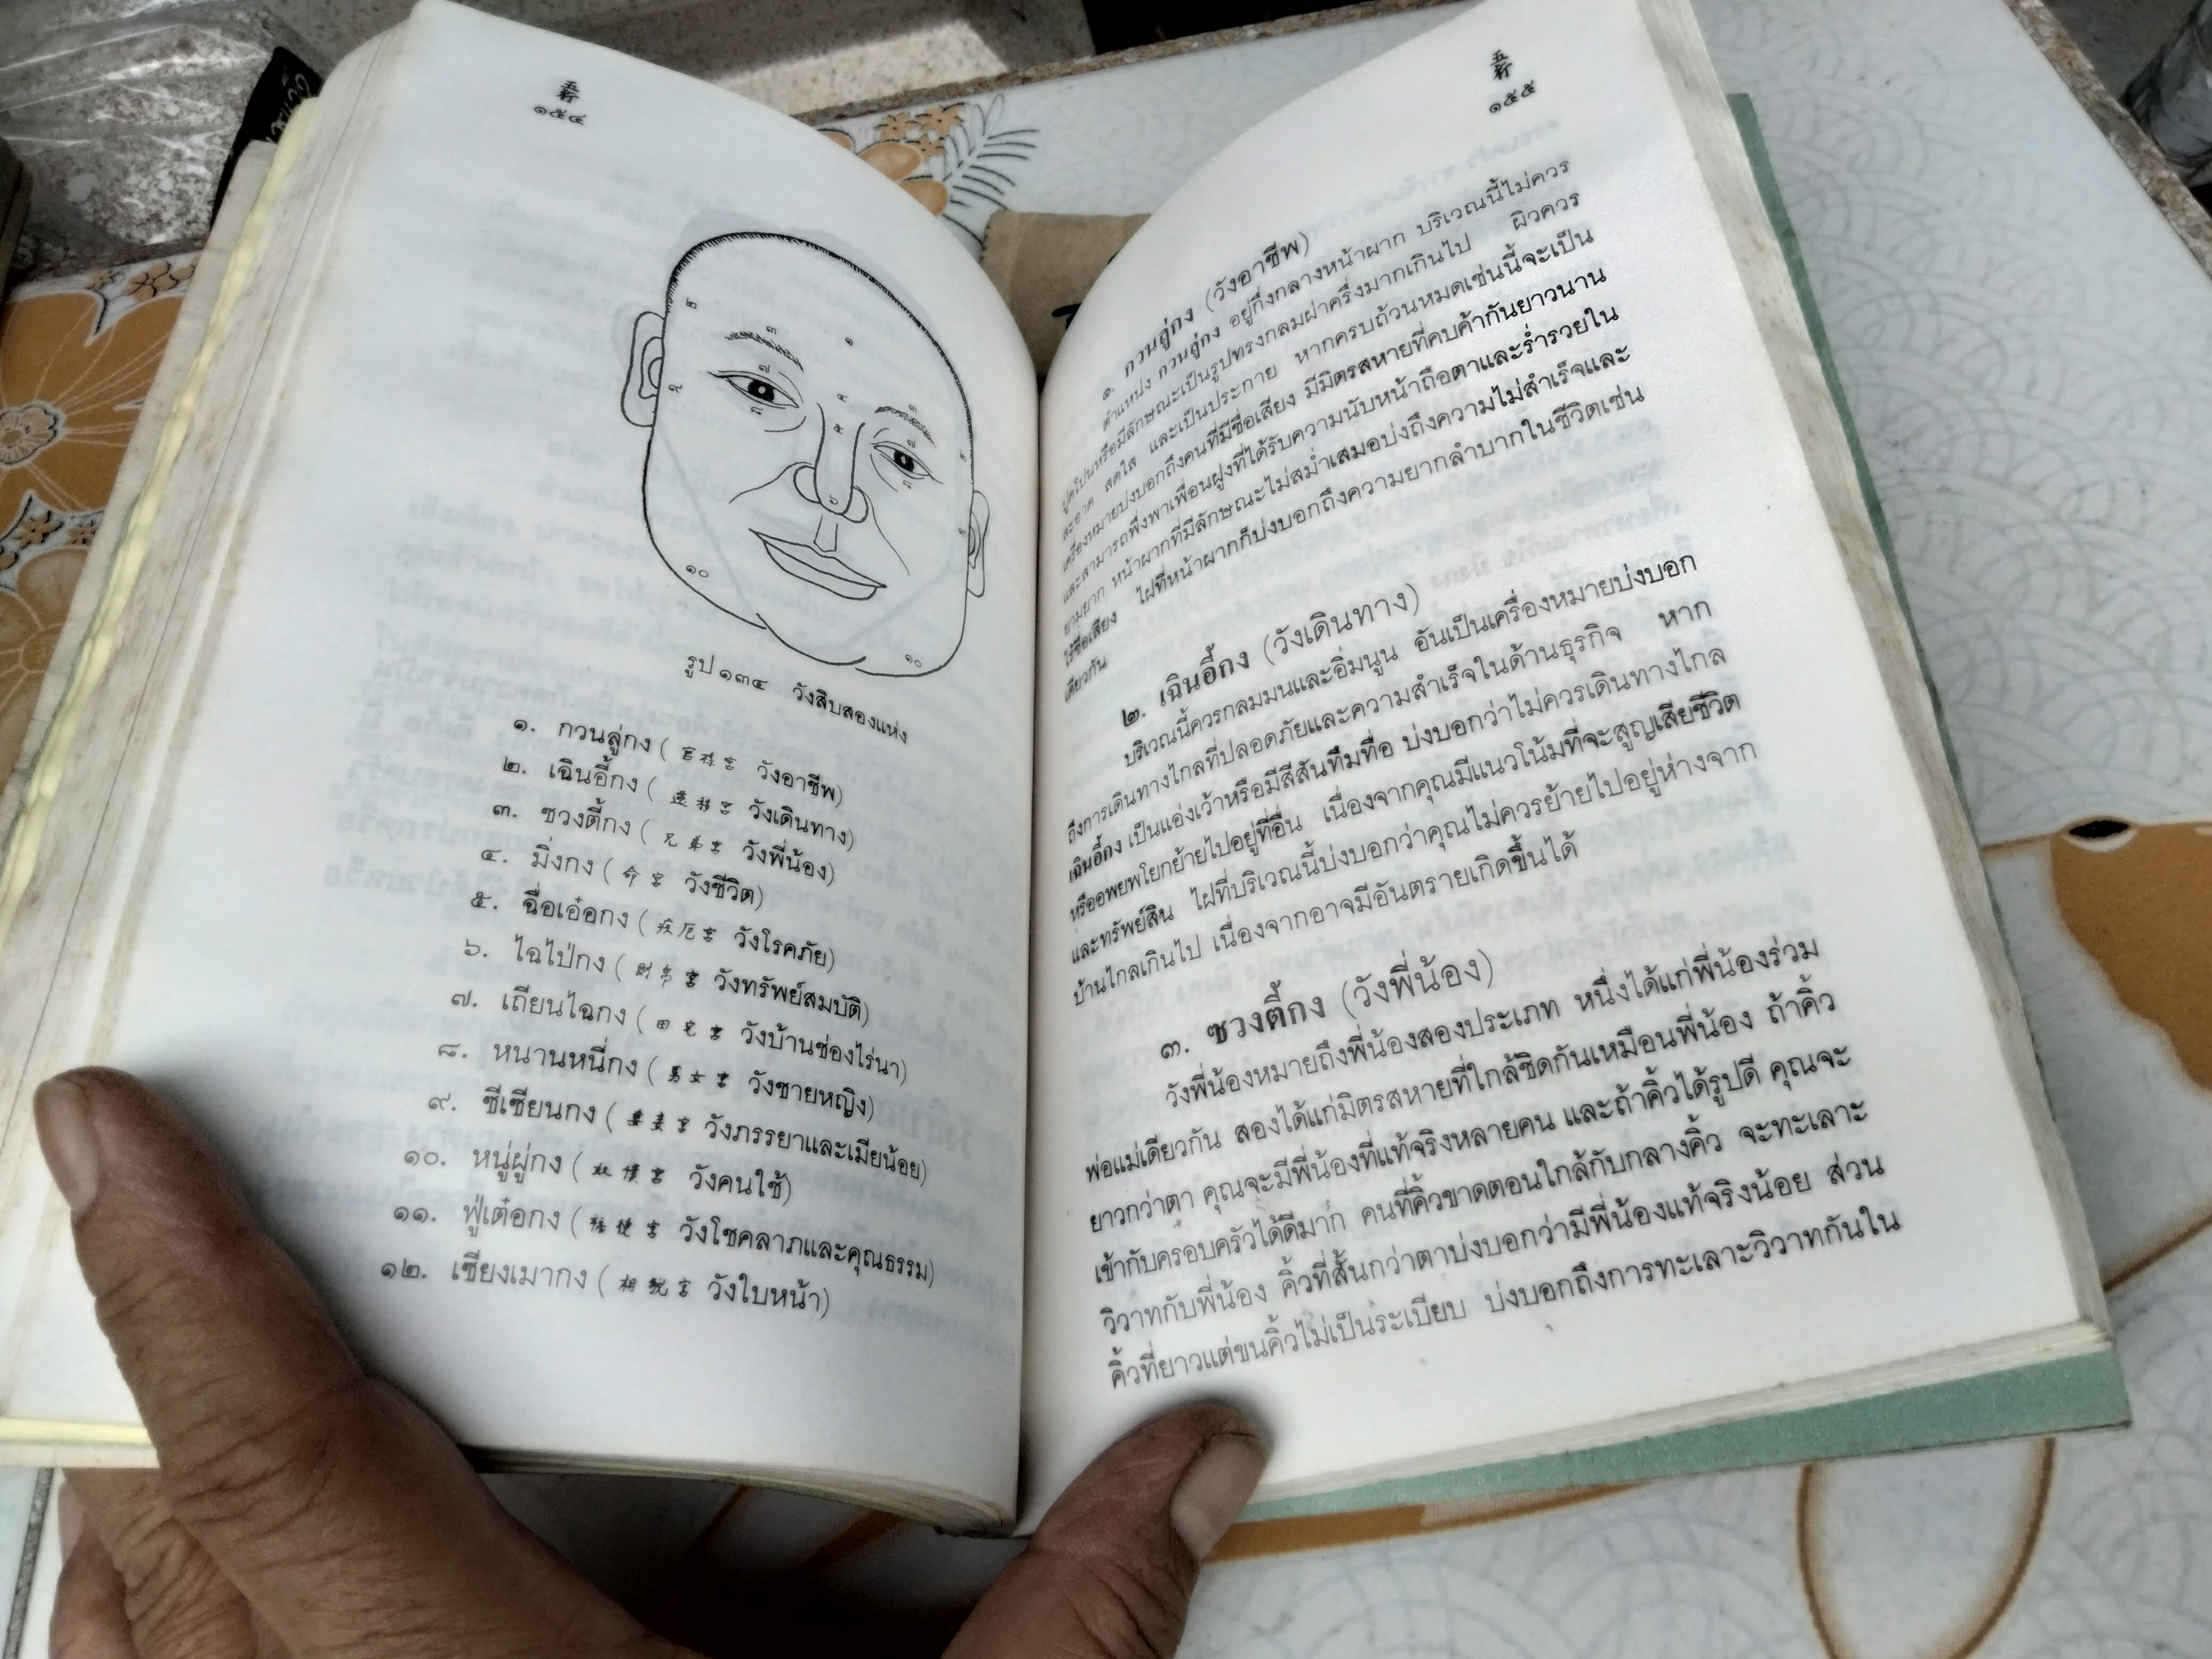 五行
๑๕๔
รูป ๑๓๔ วังสิบสองแห่ง
๑. กวนลู่กง ( 官祿宮 วังอาชีพ)
๒. เฉินอี้กง ( 遷移宮 วังเดินทาง)
๓. ซวงตี้กง ( 兄弟宮 วังพี่น้อง)
๔. มิ่งกง ( 命宮 วังชีวิต)
๕. ฉื่อเอ๋อกง ( 疾厄宮 วังโรคภัย)
๖. ไฉไป่กง ( 財帛宮 วังทรัพย์สมบัติ)
๗. เถียนไฉกง ( 田宅宮 วังบ้านช่องไร่นา)
๘. หนานหนี่กง ( 男女宮 วังชายหญิง)
๙. ชีเชียนกง ( 妻妾宮 วังภรรยาและเมียน้อย)
๑๐. หนู่ผู่กง ( 奴僕宮 วังคนใช้)
๑๑. ฟู่เต๋อกง ( 福德宮 วังโชคลาภและคุณธรรม)
๑๒. เซียงเมากง ( 相貌宮 วังใบหน้า)
五行
๑๕๕
๑. กวนลู่กง (วังอาชีพ)
ตำแหน่ง กวนลู่กง อยู่กึ่งกลางหน้าผาก บริเวณนี้ไม่ควร
ปูดโปนหรือมีลักษณะเป็นรูปทรงกลมฝ่าครึ่งมากเกินไป ผิวควร
สะอาด สดใส และเป็นประกาย หากครบถ้วนหมดเช่นนี้จะเป็น
เครื่องหมายบ่งบอกถึงคนที่มีชื่อเสียง มีมิตรสหายที่คบค้ากันยาวนาน
และสามารถพึ่งพาเพื่อนฝูงที่ได้รับความนับหน้าถือตาและร่ำรวยใน
ยามยาก หน้าผากที่มีลักษณะไม่สม่ำเสมอบ่งถึงความไม่สำเร็จและ
ไร้ชื่อเสียง ไฝที่หน้าผากก็บ่งบอกถึงความยากลำบากในชีวิตเช่น
เดียวกัน
๒. เฉินอี้กง (วังเดินทาง)
บริเวณนี้ควรกลมมนและอิ่มนูน อันเป็นเครื่องหมายบ่งบอก
ถึงการเดินทางไกลที่ปลอดภัยและความสำเร็จในด้านธุรกิจ หาก
เฉินอี้กง เป็นแอ่งเว้าหรือมีสีสันทึมทื่อ บ่งบอกว่าไม่ควรเดินทางไกล
หรืออพยพโยกย้ายไปอยู่ที่อื่น เนื่องจากคุณมีแนวโน้มที่จะสูญเสียชีวิต
และทรัพย์สิน ไฝที่บริเวณนี้บ่งบอกว่าคุณไม่ควรย้ายไปอยู่ห่างจาก
บ้านไกลเกินไป เนื่องจากอาจมีอันตรายเกิดขึ้นได้
๓. ซวงตี้กง (วังพี่น้อง)
วังพี่น้องหมายถึงพี่น้องสองประเภท หนึ่งได้แก่พี่น้องร่วม
พ่อแม่เดียวกัน สองได้แก่มิตรสหายที่ใกล้ชิดกันเหมือนพี่น้อง ถ้าคิ้ว
ยาวกว่าตา คุณจะมีพี่น้องที่แท้จริงหลายคน และถ้าคิ้วได้รูปดี คุณจะ
เข้ากับครอบครัวได้ดีมาก คนที่คิ้วขาดตอนใกล้กับกลางคิ้ว จะทะเลาะ
วิวาทกับพี่น้อง คิ้วที่สั้นกว่าตาบ่งบอกว่ามีพี่น้องแท้จริงน้อย ส่วน
คิ้วที่ยาวแต่ขนคิ้วไม่เป็นระเบียบ บ่งบอกถึงการทะเลาะวิวาทกันใน